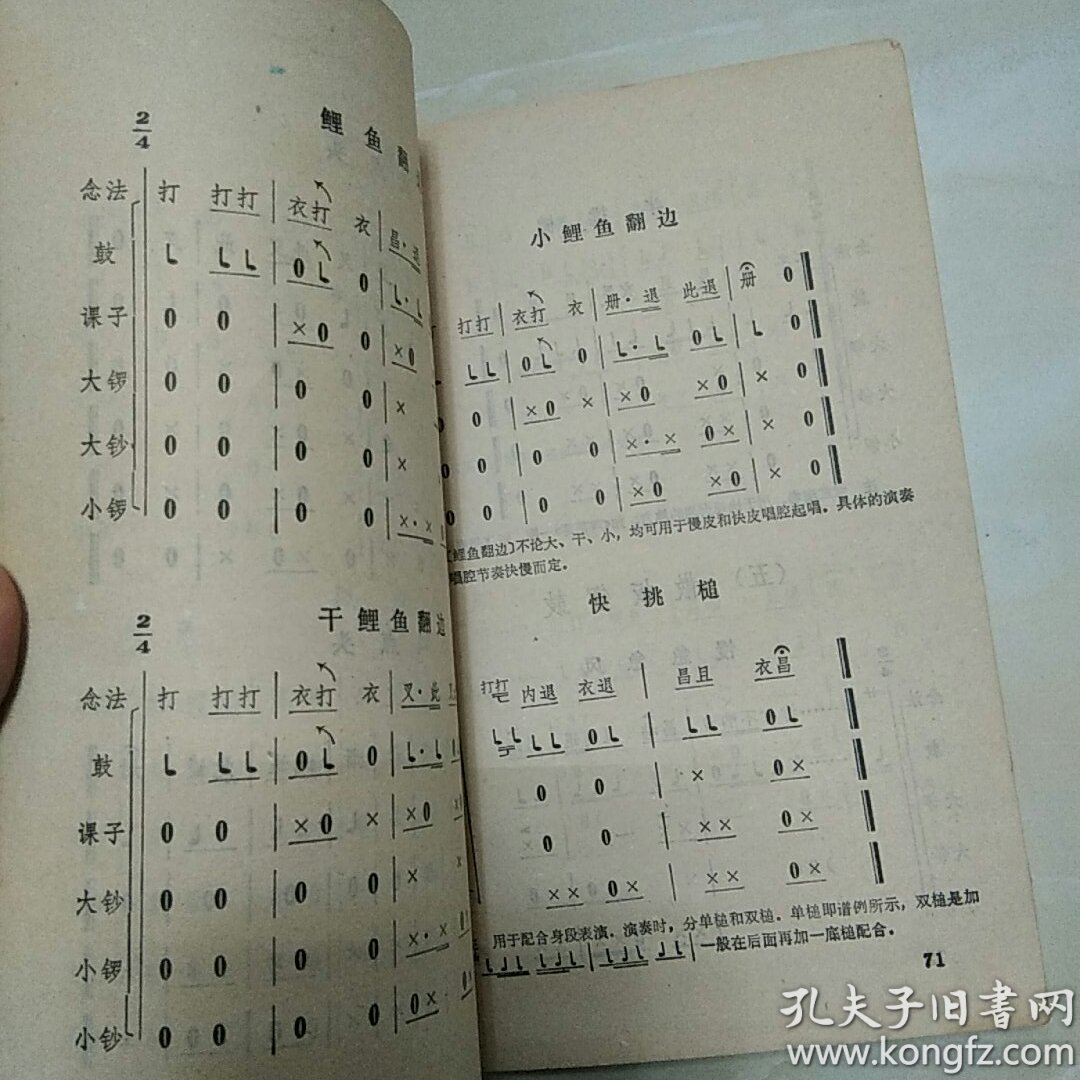 鲤鱼翻
2/4
念法 打 打打 | 衣打 衣 | 昌·退
鼓 L L L | 0 L 0 | L·L
课子 0 0 | ×0 0 | ×0
大锣 0 0 | 0 0 | ×
大钞 0 0 | 0 0 | ×
小锣 0 0 | 0 0 | ×·×
干鲤鱼翻边
2/4
念法 打 打打 | 衣打 衣 | 叉·此
鼓 L L L | 0 L 0 | L·L
课子 0 0 | ×0 × | ×0
大钞 0 0 | 0 0 | ×
小锣 0 0 | 0 0 | ×·×
小钞 0 0 | 0 0 | 0×
小鲤鱼翻边
打打 | 衣打 衣 | 册·退 此退 | 册 0
L L | 0 L 0 | L·L 0 L | L 0
0 | ×0 × | ×0 ×0 | × 0
0 0 | 0 0 | ×·× 0× | × 0
0 0 | 0 0 | ×0 ×0 | × 0
〔鲤鱼翻边〕不论大、干、小，均可用于慢皮和快皮唱腔起唱．具体的演奏
唱腔节奏快慢而定．
快挑槌
打打 内退 衣退 | 昌且 衣昌
L L L L 0 L | L L 0 L
0 0 | × 0×
0 0 | ×× 0×
×× 0× | ×× 0×
用于配合身段表演．演奏时，分单槌和双槌．单槌即谱例所示，双槌是加
一般在后面再加一底槌配合．
71
孔夫子旧书网
www.kongfz.com